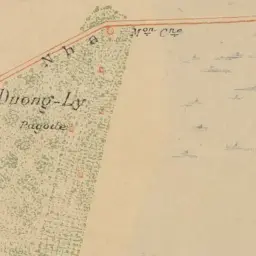 Nha
Mon Cne
Duong-Ly
Pagode